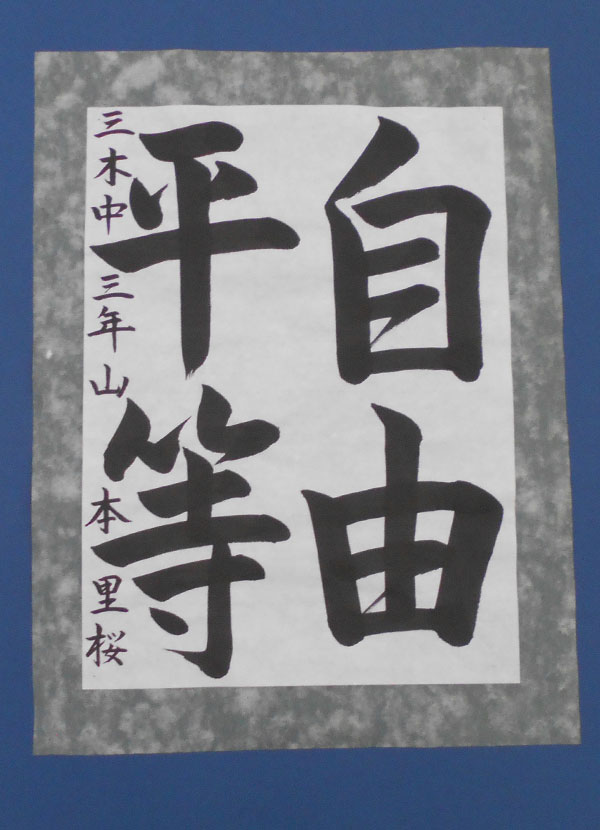 自由
平等
三木中 三年 山本里桜